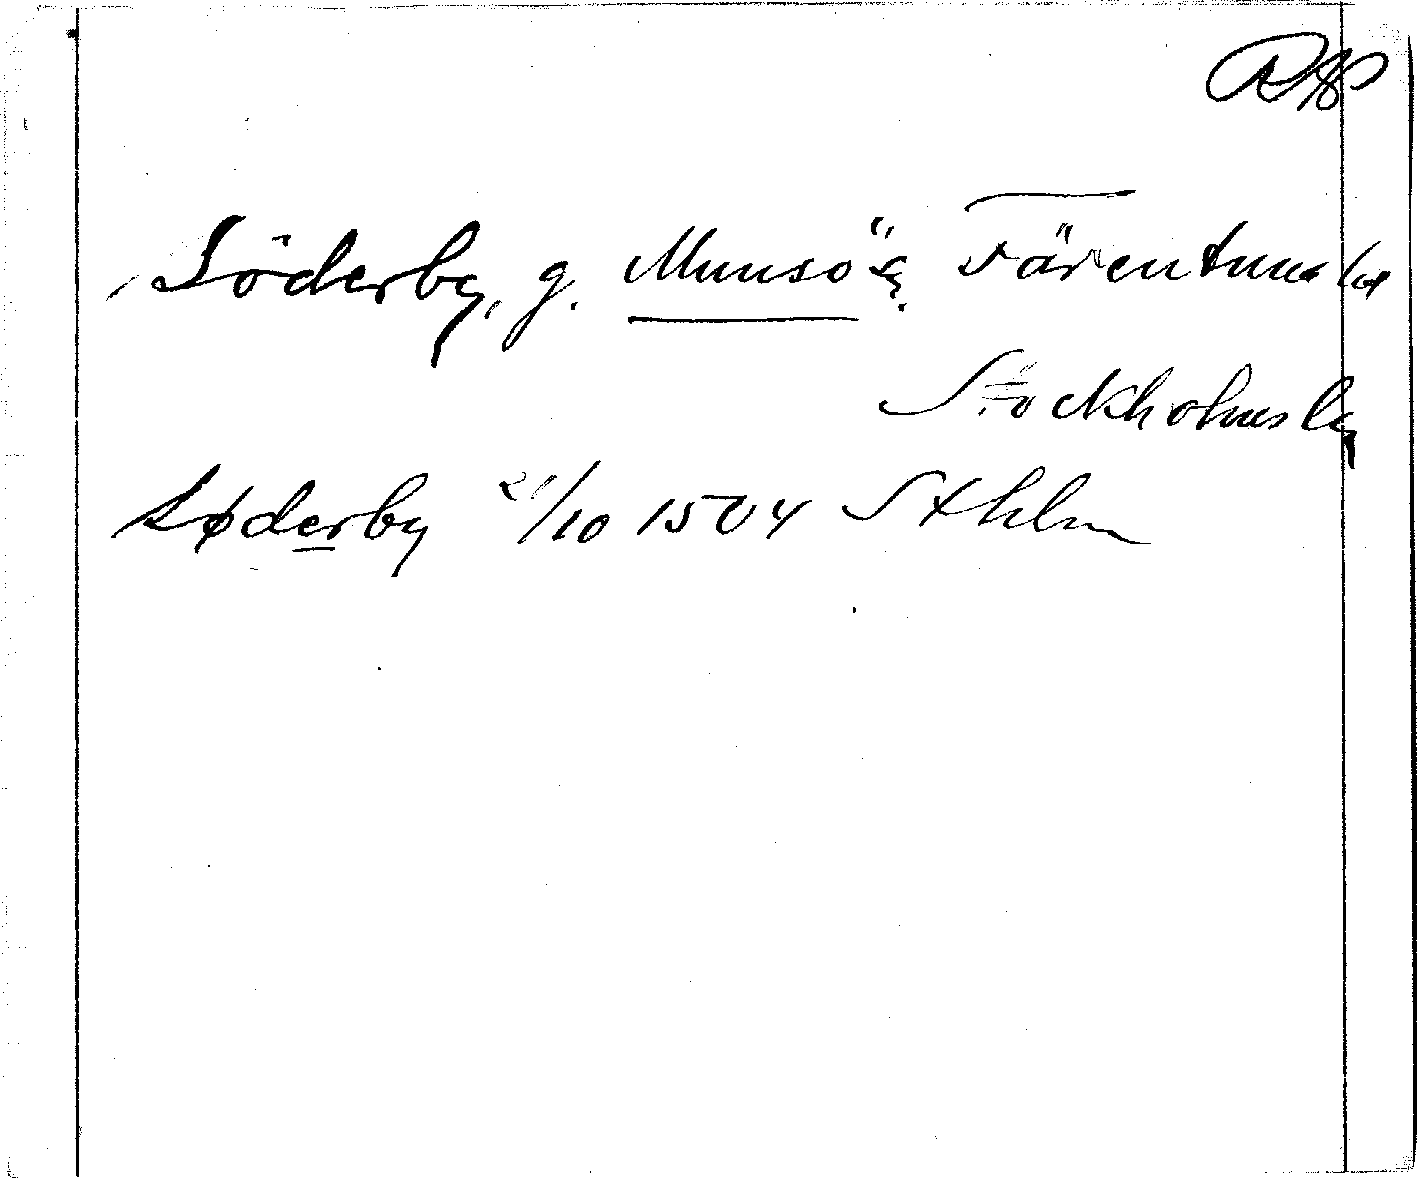 Söderby, g. Munsö s. Färentuna hd
Stockholms ln
Søderby 21/10 1504 Sthlm